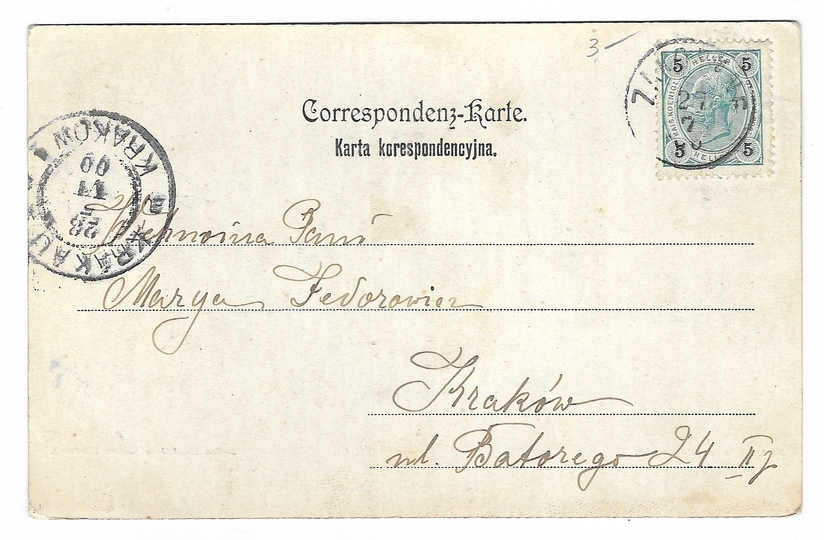 3 –
5 HELLER 5
5 HELLER 5
27
7
Correspondenz-Karte.
Karta korespondencyjna.
KRAKAU KRAKÓW
28
00
Wielmożna Pani
Marya Fedorowicz
Kraków
ul. Batorego 24 II p